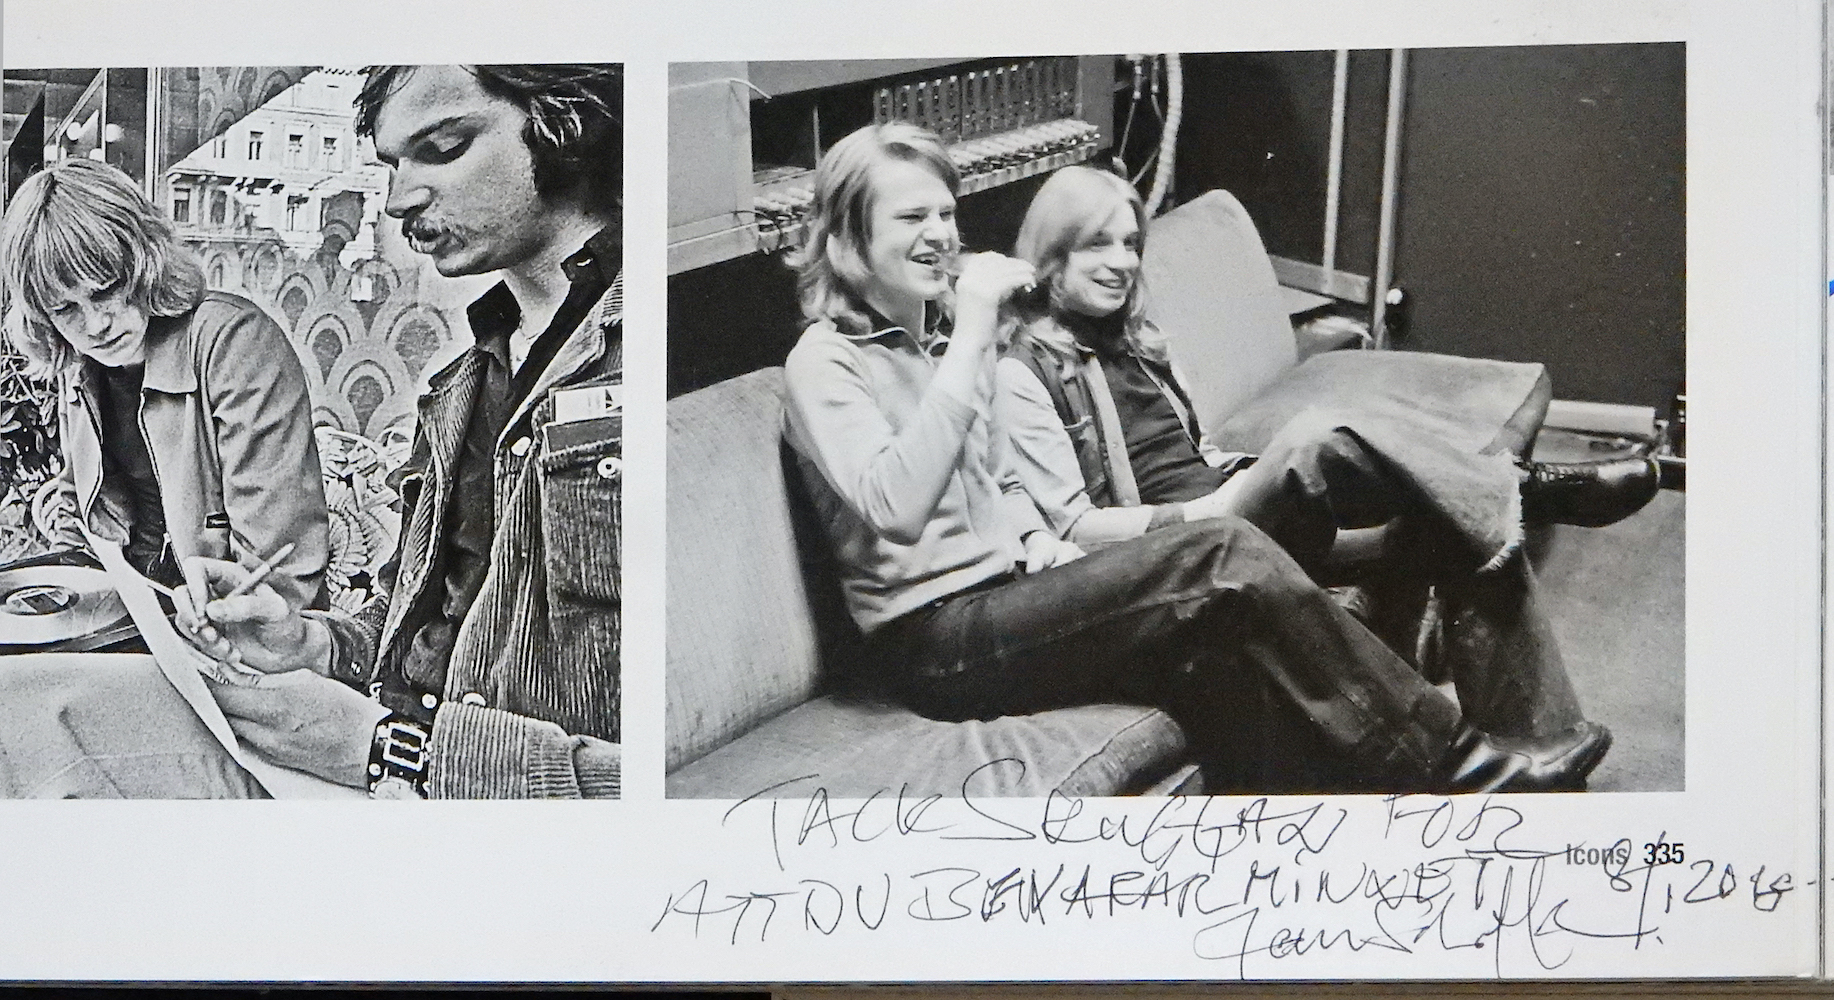 Icons 335
TACK SKUGGAN FÖR
ATT DU BEVARAR MINNET 8/1, 20